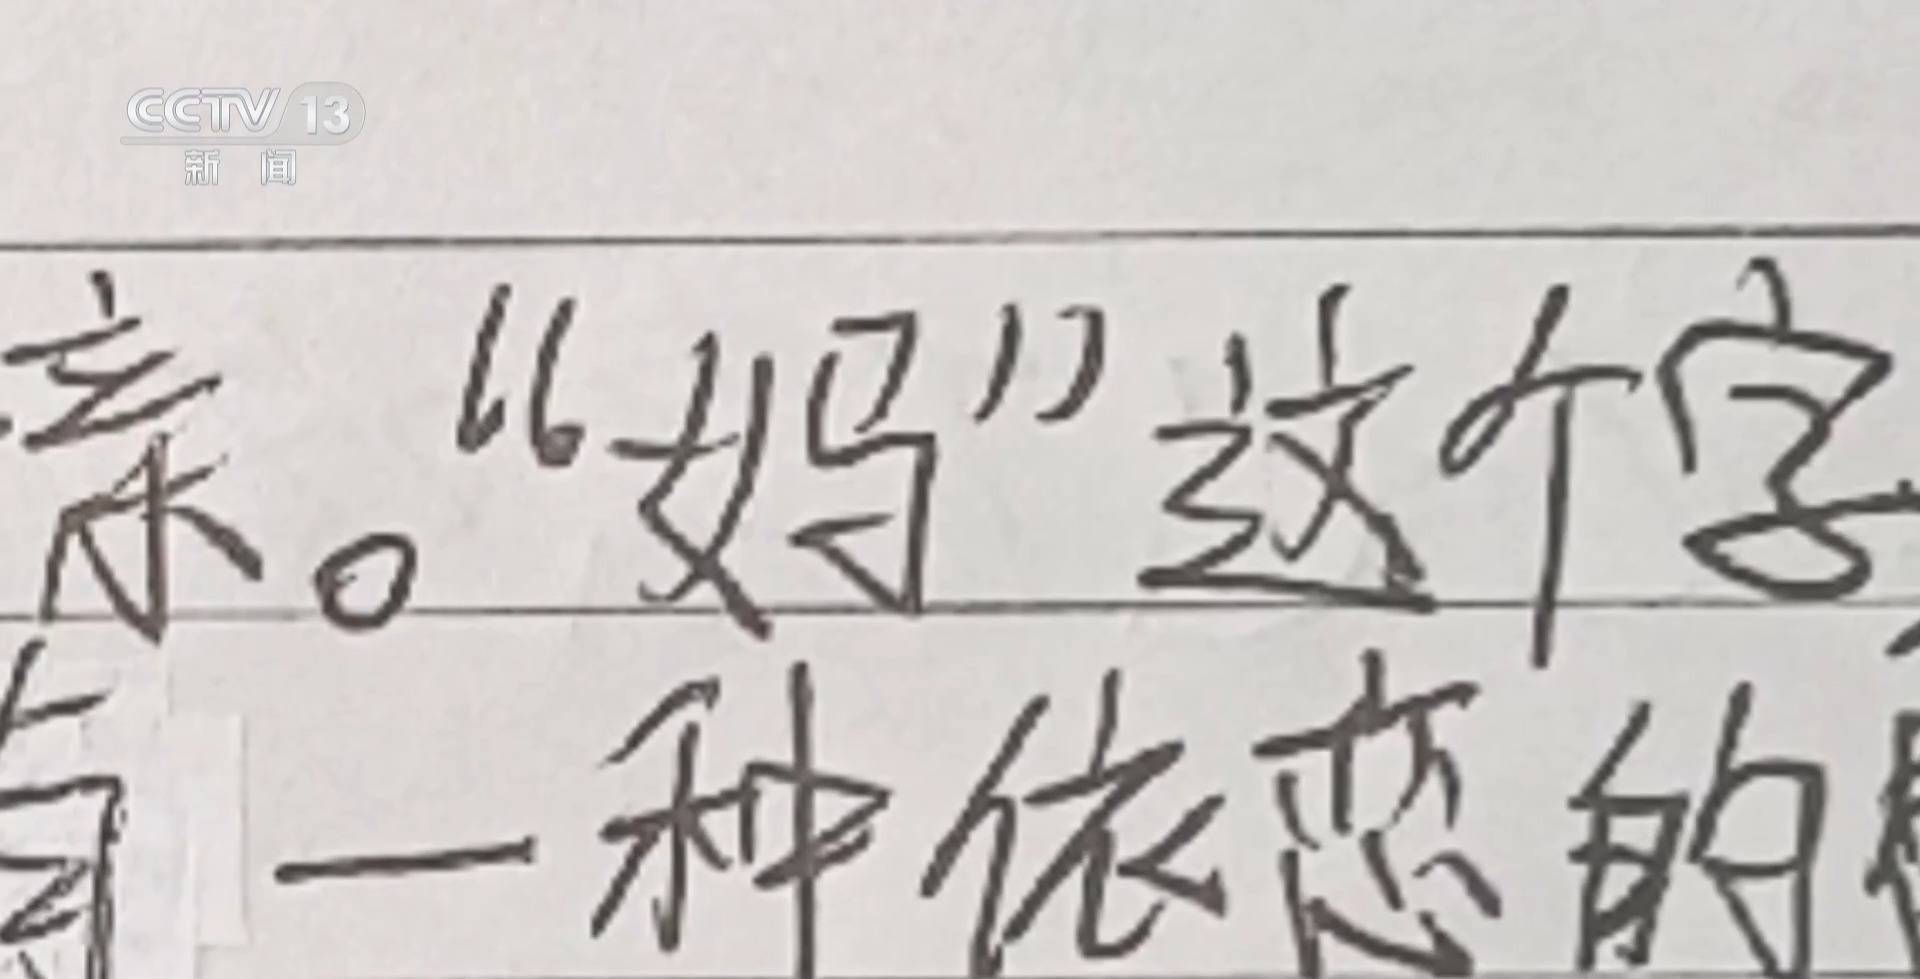 CCTV 13
新闻
亲。“妈”这个字
有一种依恋的